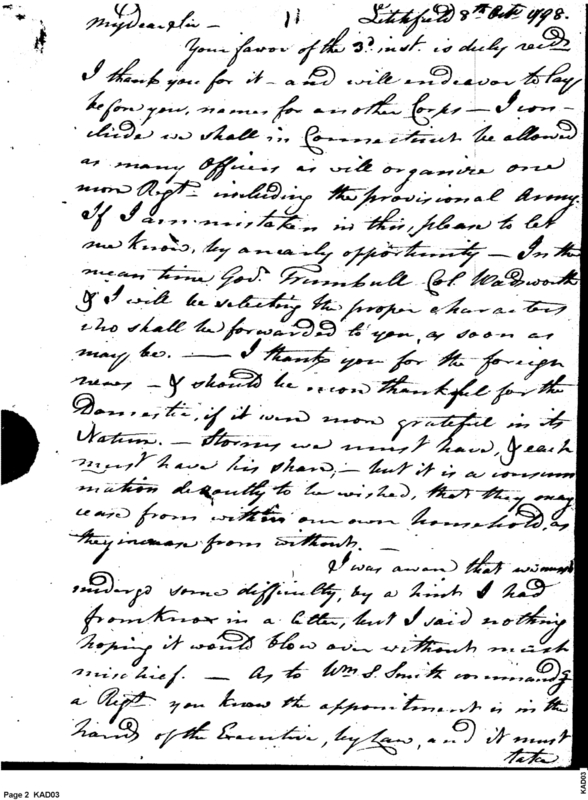 My Dear Sir — 11 Litchfield 8th Octr 1798.
Your favor of the 3d inst. is duly recd
I thank you for it – and will endeavor to lay
before you, names for another Corps — I con-
clude we shall in Connecticut be allowed
as many Officers as will organize one
more Regt including the provisional Army.
If I am mistaken in this, please to let
me know, by an early opportunity — In the
mean time Govr Trumbull Col. Wadsworth
& I will be selecting the proper characters
who shall be forwarded to you, as soon as
may be. — I thank you for the foreign
news — & should be more thankful for the
Domestic, if it were more grateful in its
Nature. — Storms we must have, & each
must have his share, — but it is a consum
mation devoutly to be wished, that they may
cease from within our own household, as
they increase from without. —
I was aware that we must
undergo some difficulty, by a hint I had
from Knox in a letter, but I said nothing
hoping it would blow over without much
mischief. — As to Wm S. Smith commandg
a Regt you know the appointment is in the
hands of the Executive, by Law, and it must
take
Page 2 KAD03
KAD03